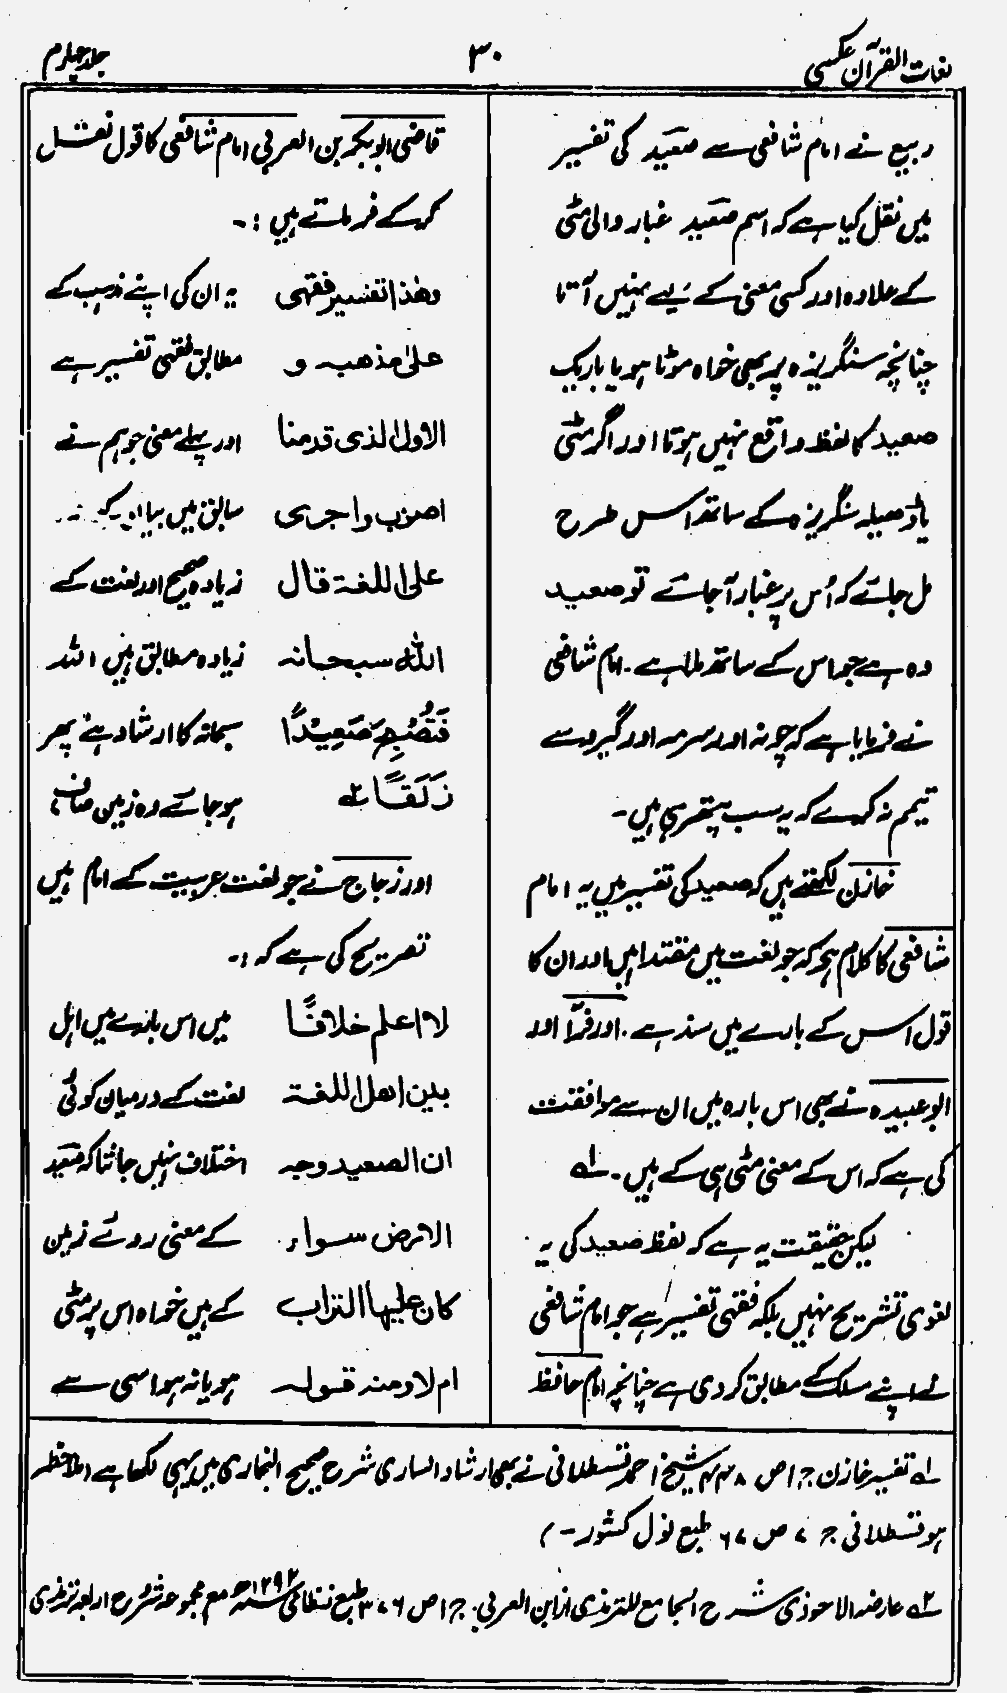 لغات القرآن عکسی
۳۰
جلد چہارم
ربیع نے امام شافعی سے صَعِید کی تفسیر
میں نقل کیا ہے کہ اسم صَعِید غبار والی مٹی
کے علاوہ اور کسی معنی کے لیے نہیں آتا
چنانچہ سنگریزہ پر بھی خواہ موٹا ہو یا باریک
صعید کا لفظ واقع نہیں ہوتا اور اگر مٹی
یا ڈھیلہ سنگریزہ کے ساتھ اس طرح
مل جائے کہ اُس پر غبار آ جائے تو صعید
وہ ہے جو اس کے ساتھ ملا ہے۔ امام شافعی
نے فرمایا ہے کہ چونہ اور سرمہ اور گیرو سے
تیمم نہ کرے کہ یہ سب پتھر ہی ہیں۔
خازن لکھتے ہیں کہ صعید کی تفسیر میں یہ امام
شافعی کا کلام ہے کہ جو لغت میں مقتدا ہیں اور ان کا
قول اس کے بارے میں سند ہے۔ اور فرّا اور
ابو عبیدہ نے بھی اس بارہ میں ان سے موافقت
کی ہے کہ اس کے معنی مٹی ہی کے ہیں۔ ۱؎
لیکن حقیقت یہ ہے کہ لفظ صعید کی یہ
لغوی تشریح نہیں بلکہ فقہی تفسیر ہے جو امام شافعی
نے اپنے مسلک کے مطابق کر دی ہے چنانچہ امام حافظ
قاضی ابوبکر بن العربی امام شافعی کا قول نقل
کرکے فرماتے ہیں :۔
وهٰذا تفسیر فقهی یہ ان کی اپنے مذہب کے
علیٰ مذهبه و مطابق فقہی تفسیر ہے
الاول الذی قدمنا اور پہلے معنی جو ہم نے
اصوب واجری سابق میں بیان کیے
علی اللغة قال زیادہ صحیح اور لغت کے
اللّٰه سبحانه زیادہ مطابق ہیں اللہ
فَتُصْبِحَ صَعِیْدًا سبحانہ کا ارشاد ہے پھر
زَلَقًا ۲؎ ہو جائے وہ زمین صاف،
اور زجاج نے جو لغت عربیت کے امام ہیں
تصریح کی ہے کہ :۔
لا اعلم خلافًا میں اس بارے میں اہل
بین اهل اللغة لغت کے درمیان کوئی
ان الصعید وجه اختلاف نہیں جانتا کہ صَعِید
الارض سواء کے معنی روئے زمین
کان علیها التراب کے ہیں خواہ اس پر مٹی
ام لا ومنه قوله ہو یا نہ ہو اسی سے
۱؎ تفسیر خازن ج ۱ ص ۴۴۸ شیخ احمد قسطلانی نے بھی ارشاد الساری شرح صحیح البخاری میں یہی لکھا ہے (ملاحظہ
ہو قسطلانی ج ۷ ص ۶۷ طبع نول کشور۔)
۲؎ عارضۃ الاحوذی شرح الجامع للترمذی از ابن العربی ج ۱ ص ۳۷۶ طبع نظامی ۱۲۹۲ھ مع مجموعہ شروح اربعہ ترمذی